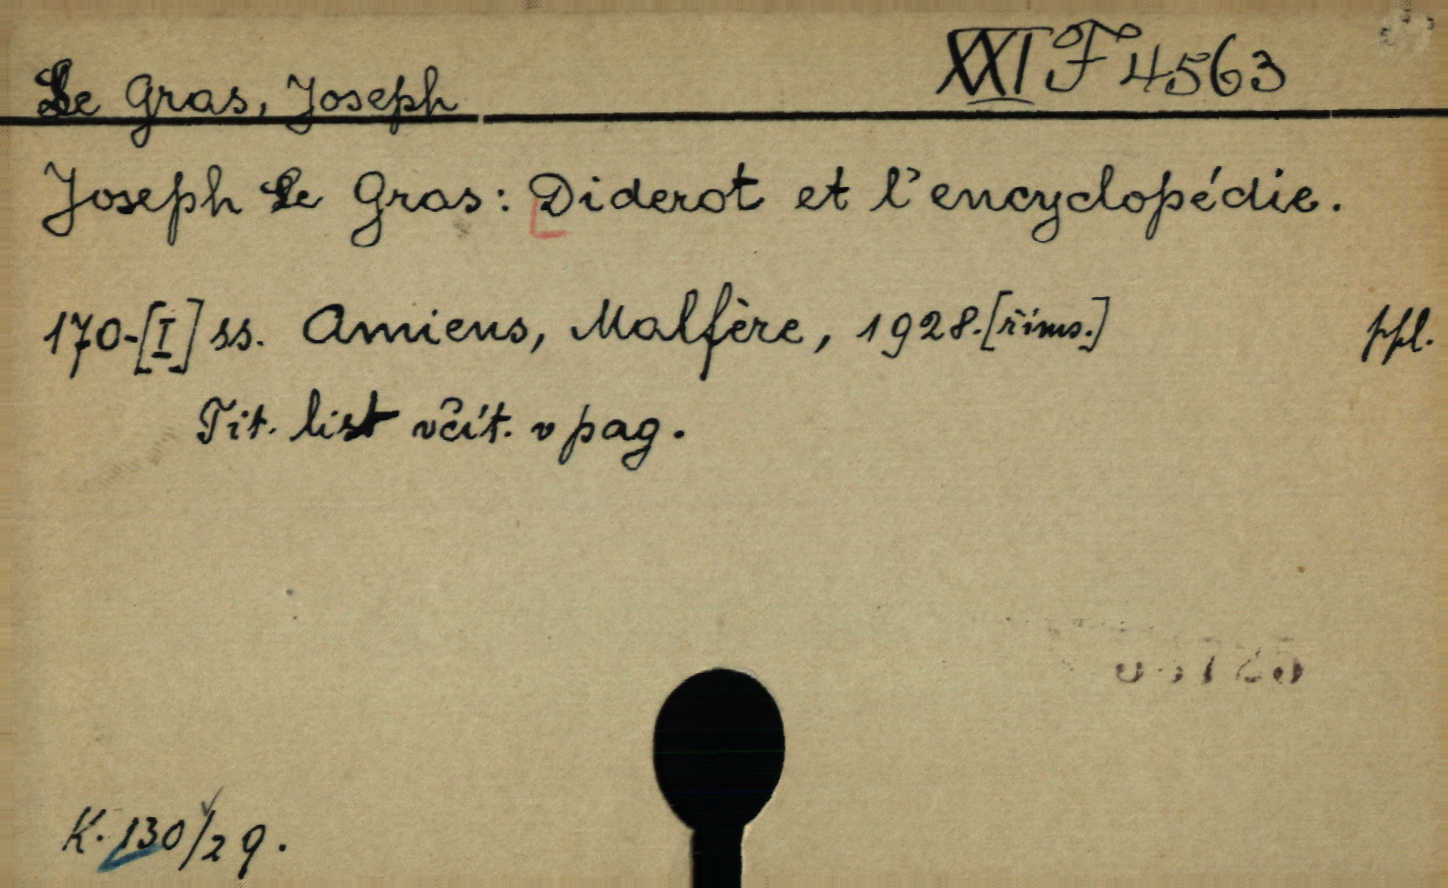 XXI F 4563
Le Gras, Joseph
Joseph Le Gras: Diderot et l'encyclopédie.
170-[I] ss. Amiens, Malfère, 1928.[říms.] ppl.
Tit. list včít. v pag.
K. 130/29.